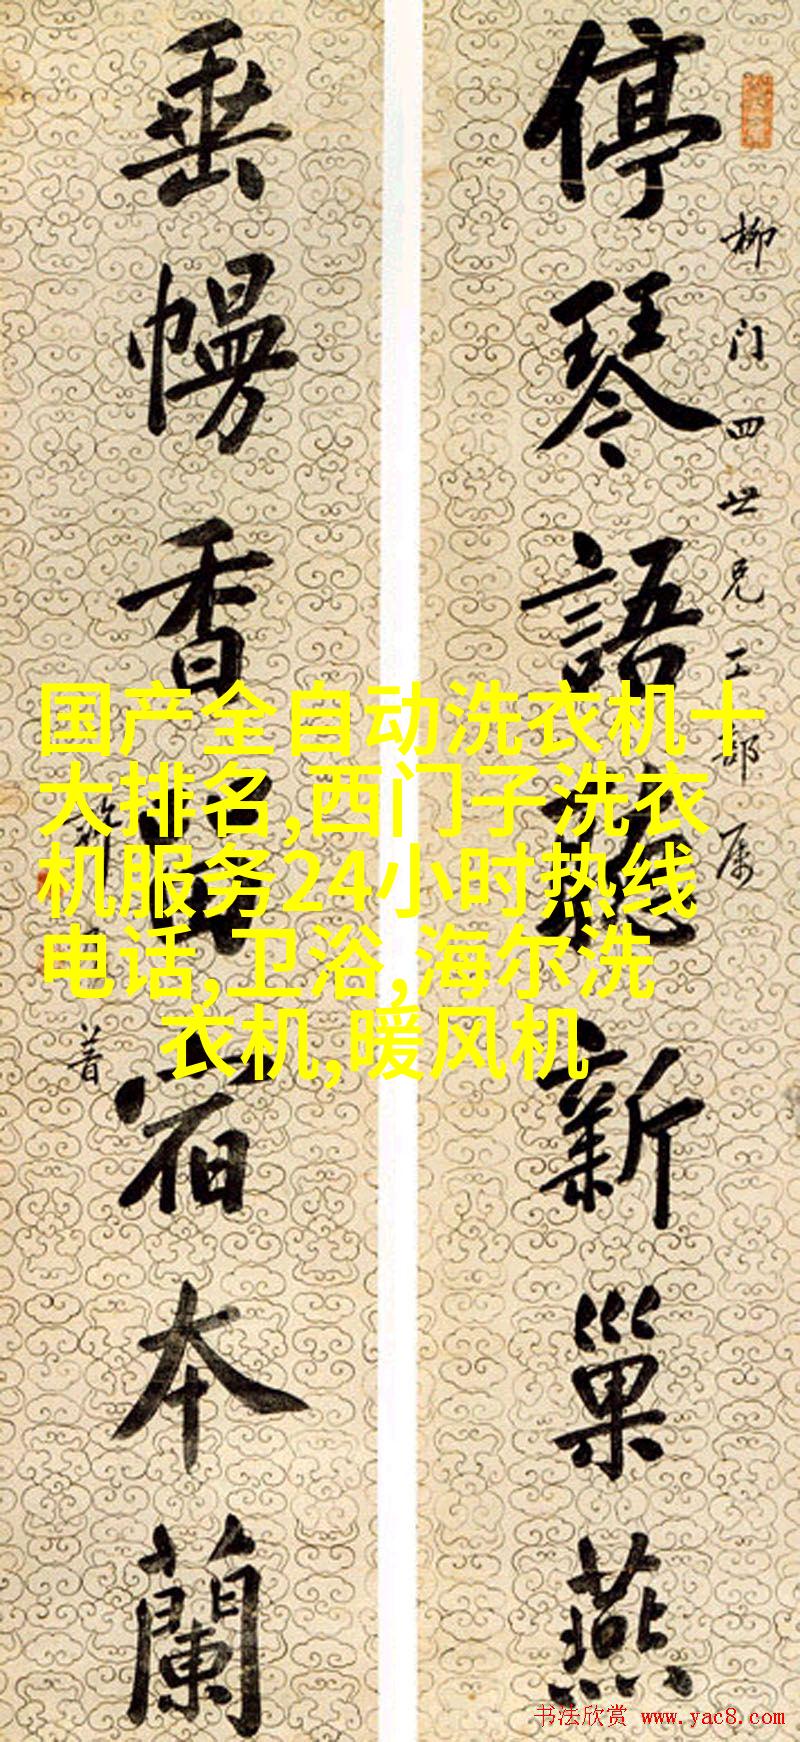 柳门四世兄工部属
停琴語新巢燕
垂幔香宿本蘭
国产全自动洗衣机十
大排名,西门子洗衣
机服务24小时热线
电话,卫浴,海尔洗
衣机,暖风机
书法欣赏 www.yac8.com